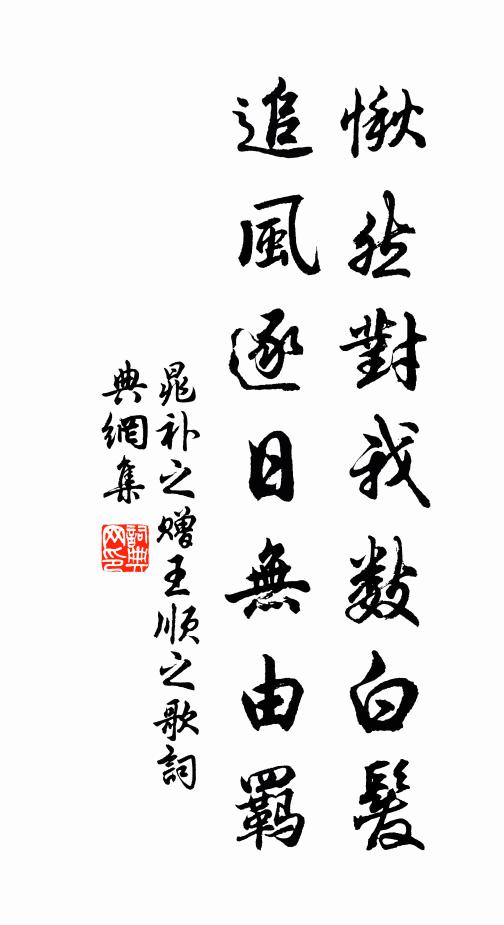 愀然對我數白髮
追風逐日無由羈
晁补之赠王顺之歌詞
典網集
詞典网印